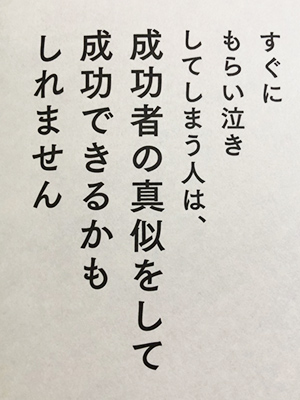 すぐに
もらい泣き
してしまう人は、
成功者の真似をして
成功できるかも
しれません